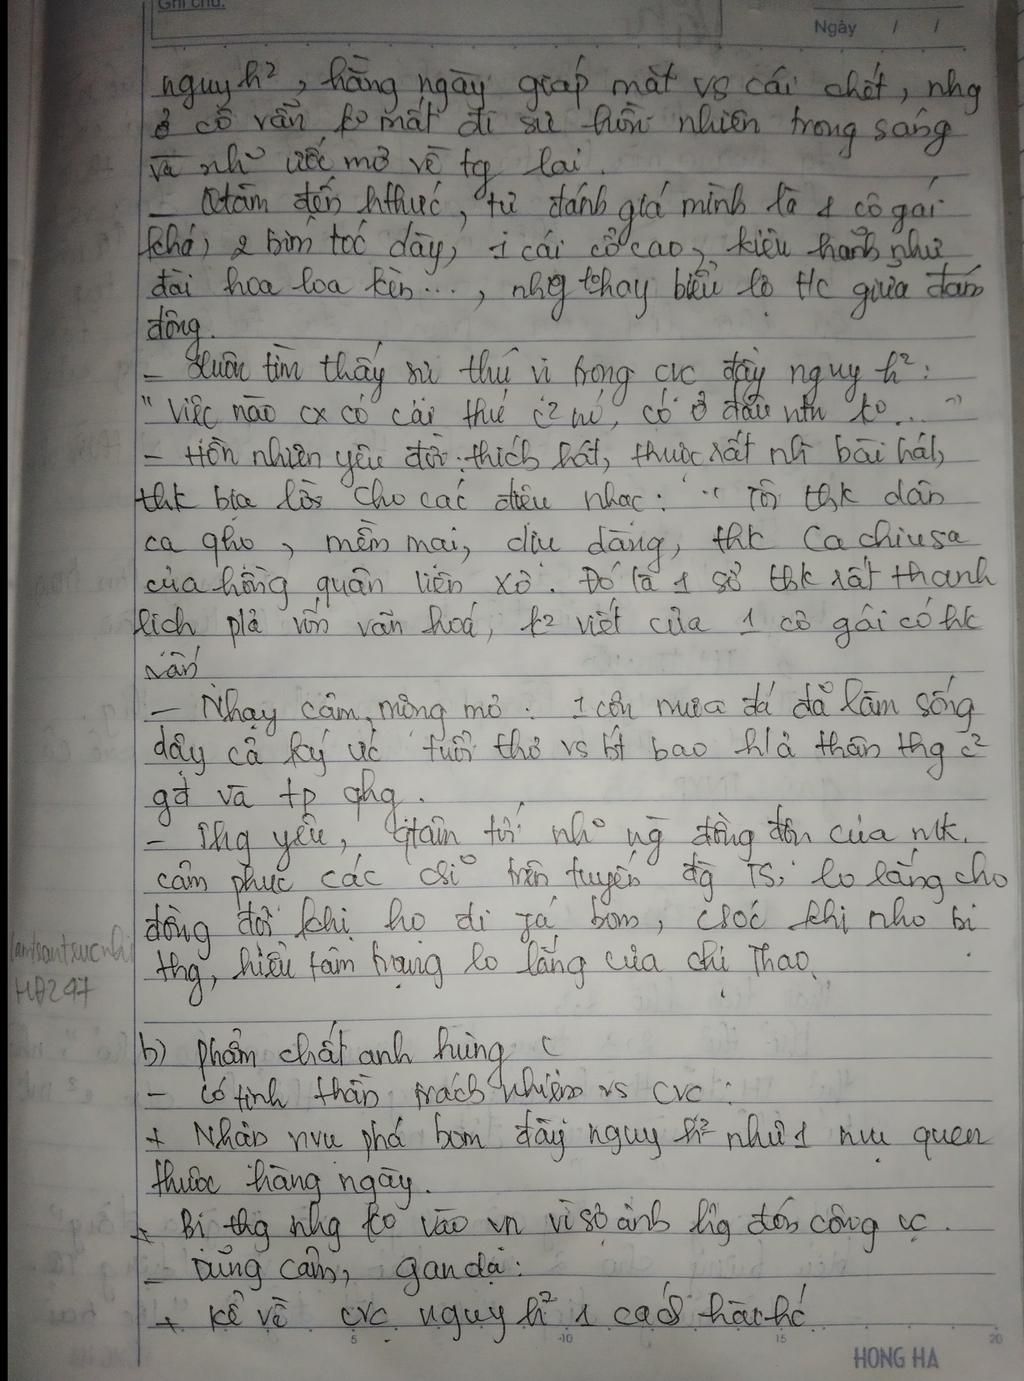 Ghi chú:
Ngày / /
nguy h², hằng ngày giáp mặt vs cái chết, nhg
ở cô vẫn ko mất đi sự hồn nhiên trong sáng
và nh~ ước mơ về tg lai.
- Qtâm đến hthức, tự đánh giá mình là 1 cô gái
khá, 2 bím tóc dày, 1 cái cổ cao, kiêu hãnh như
đài hoa loa kèn..., nhg thay biểu lộ t/c giữa đám
đông.
- Luôn tìm thấy sự thú vị trong cvc đầy nguy h²:
" Việc nào cx có cái thú c² nó, có ở đâu ntn ko... "
- Hồn nhiên yêu đời: thích hát, thuộc rất nh bài hát,
thk bịa lời cho các điệu nhạc: " Tôi thk dân
ca qho, mềm mại, dịu dàng, thk Ca chiusa
của hồng quân liên xô. Đó là 1 sở thk rất thanh
lịch vốn văn hoá, k² viết của 1 cô gái có hk
- Nhạy cảm, mộng mơ: 1 cơn mưa đá đã làm sống
dậy cả ký ức tuổi thơ vs bao h/a thân thg c²
gđ và tp qhg.
- Thg yêu, Qtâm tới nh~ ng đồng đội của mk.
cảm phục các csĩ trên tuyến đg TS, lo lắng cho
đồng đội khi họ đi phá bom, csóc khi nho bị
thg, hiểu tâm trạng lo lắng của chị Thao.
b) phẩm chất anh hùng c
- có tinh thần trách nhiệm vs cvc:
+ Nhận nvu phá bom đầy nguy h² như 1 nvụ quen
thuộc hàng ngày.
+ Bị thg nhg ko vào vn vì sợ ảnh hg đến công vc.
- Dũng cảm, gan dạ:
+ kể về cvc nguy h² 1 cách
HA297
5 10 15 20
HONG HA